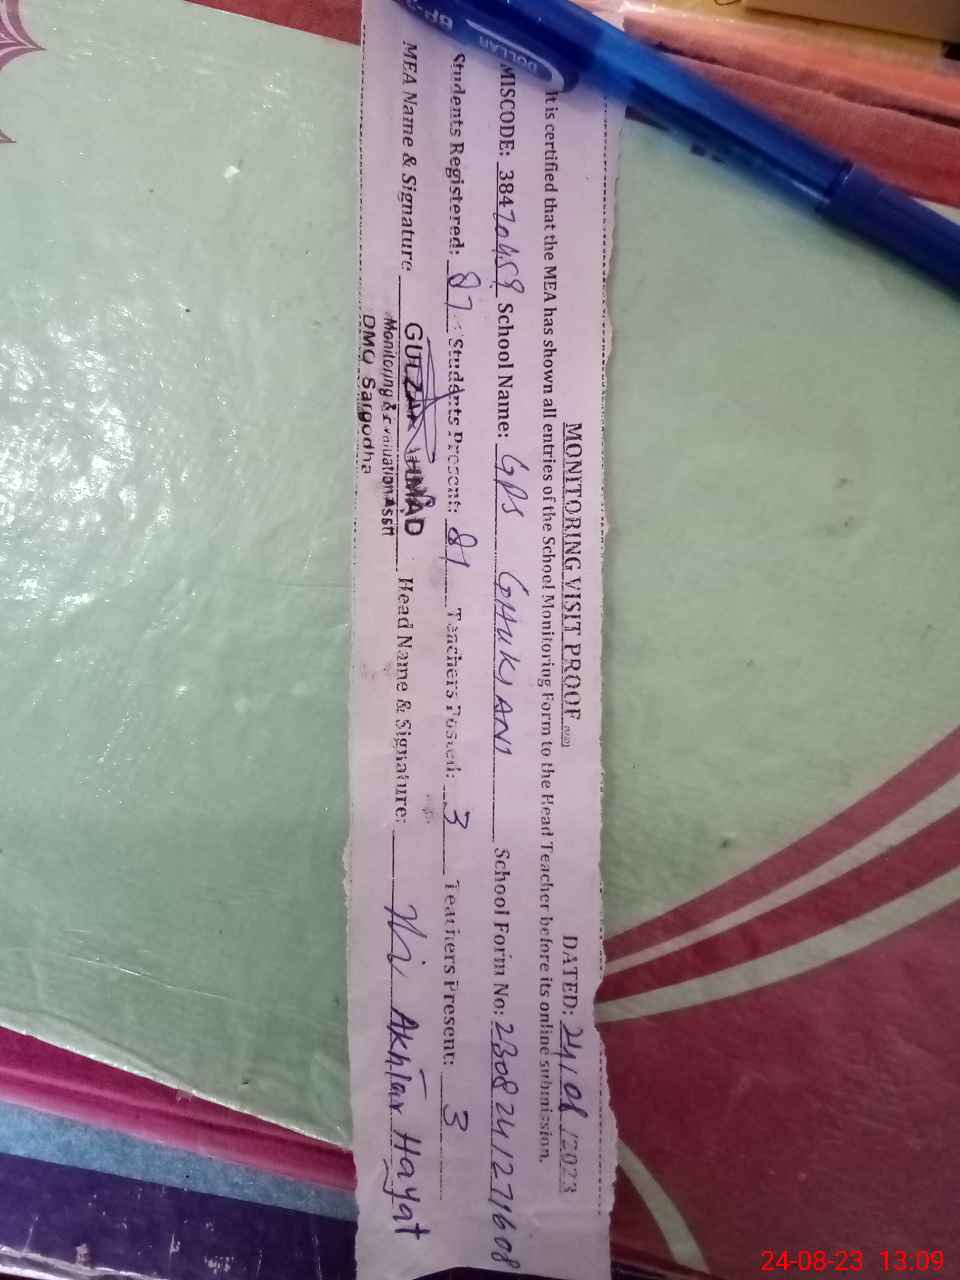 MONITORING VISIT PROOF DATED: 24/08/2023
It is certified that the MEA has shown all entries of the School Monitoring Form to the Head Teacher before its online submission.
MISCODE: 38470459 School Name: GPS GHUKIANI School Form No: 2308241271608
Students Registered: 87 Students Present: 81 Teachers Posted: 3 Teachers Present: 3
MEA Name & Signature GULZAR AHMAD Head Name & Signature: Akhtar Hayat
Monitoring & Evaluation Asstt
DMO Sargodha
DOLLAR
24-08-23 13:09